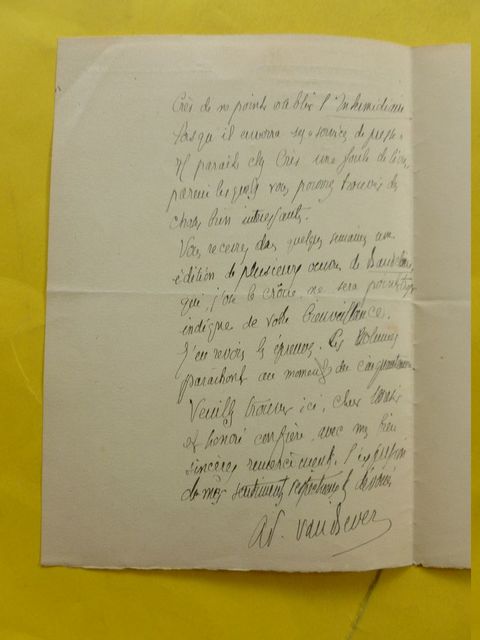 Crès de ne point oublier l'Intermédiaire
lorsqu'il enverra ses services de presse.
Il paraît chez Crès une foule de livres
parmi lesquels vous pouvez trouver des
choses bien intéressantes.
Vous recevrez dans quelques semaines une
édition de plusieurs œuvres de Baudelaire
qui, j'ose le croire, ne sera point trop
indigne de votre bienveillance.
J'en revois les épreuves. Les volumes
paraîtront au moment du cinquantenaire.
Veuillez trouver ici, cher Maître
et honoré confrère, avec mes bien
sincères remerciements, l'expression
de mes sentiments respectueux et dévoués
Ad. van Bever